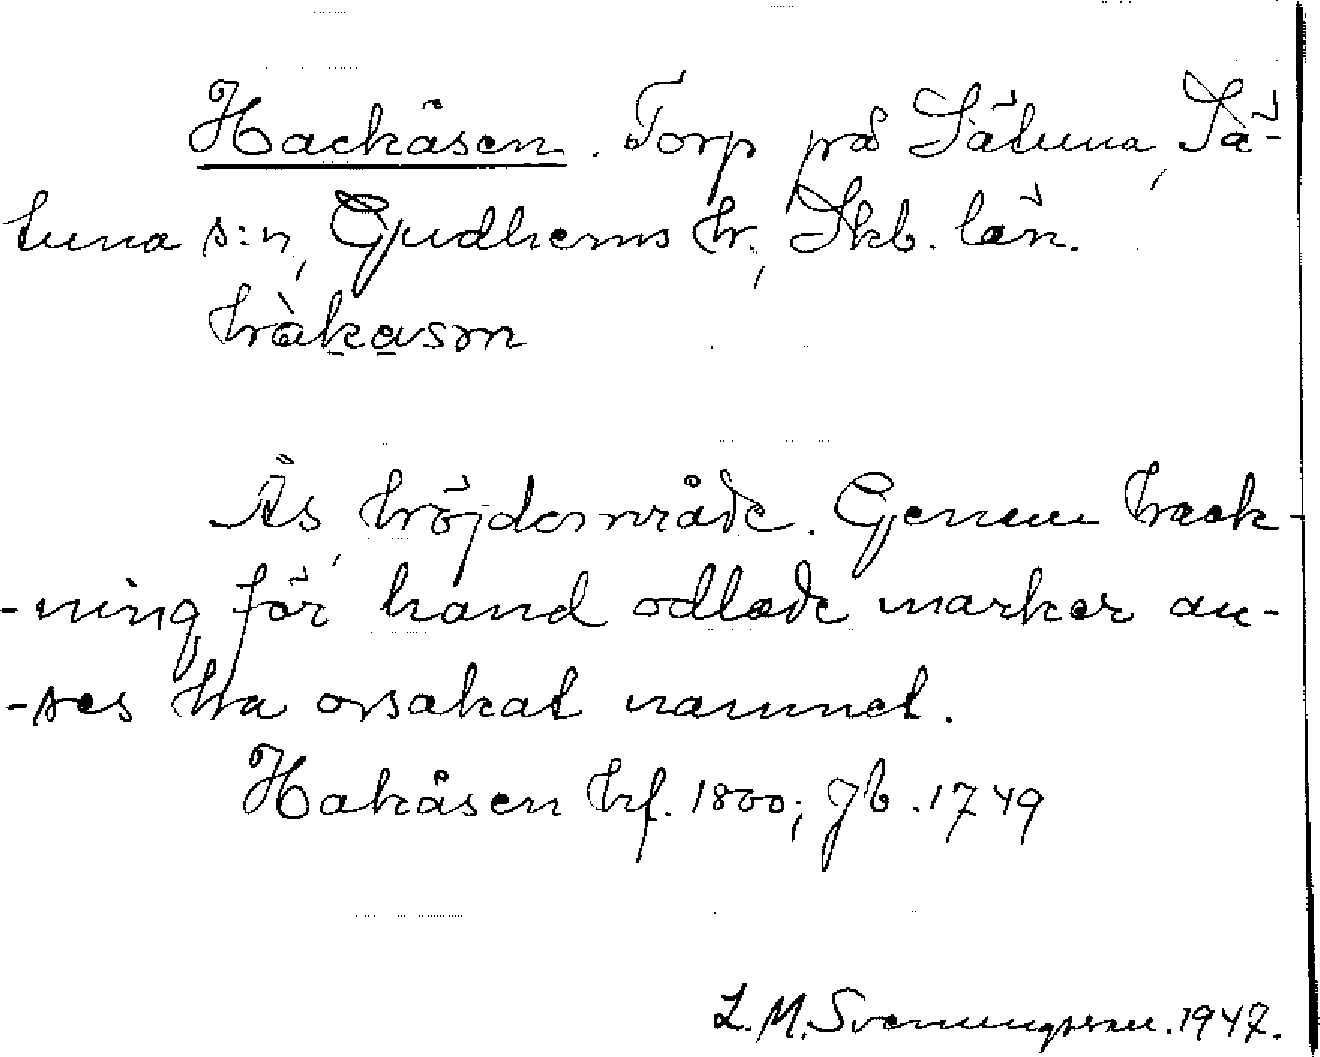 Hackåsen. Torp på Sätuna, Sä-
tuna s:n, Gudhems hr., Skb. län.
hàkasm
Ås, höjdområde. Genom hack-
-ning för hand odlade marker an-
-ses ha orsakat namnet.
Hakåsen hf. 1800; jb. 1749
L. M. Svenungsson. 1947.